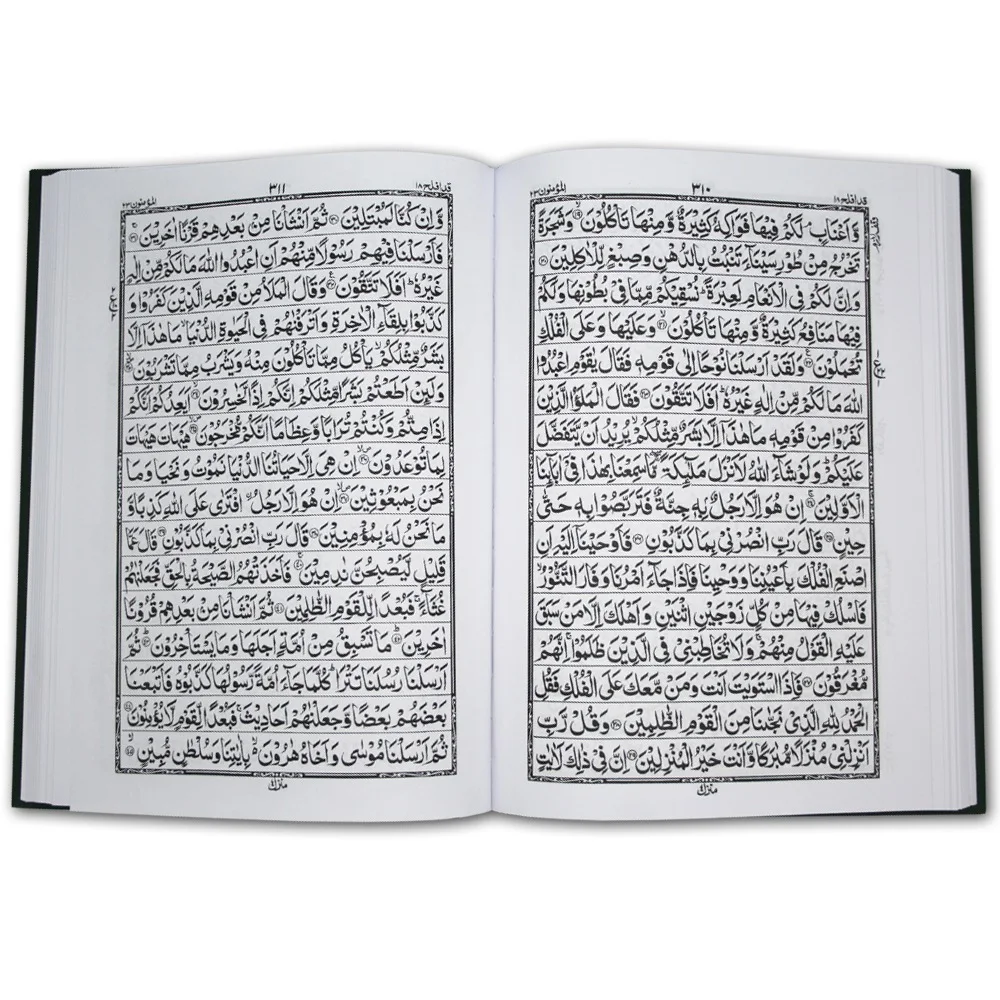 قد افلح ١٨
٣١٠
المؤمنون ٢٣
وَّاَعْنَابٍ ۘ لَكُمْ فِيْهَا فَوَاكِهُ كَثِيْرَةٌ وَّمِنْهَا تَاْكُلُوْنَ ۙ۱۹ وَشَجَرَةً
تَخْرُجُ مِنْ طُوْرِ سَيْنَآءَ تَنْۢبُتُ بِالدُّهْنِ وَصِبْغٍ لِّلْاٰكِلِيْنَ ۲۰
وَاِنَّ لَكُمْ فِي الْاَنْعَامِ لَعِبْرَةً ؕ نُسْقِيْكُمْ مِّمَّا فِيْ بُطُوْنِهَا وَلَكُمْ
فِيْهَا مَنَافِعُ كَثِيْرَةٌ وَّمِنْهَا تَاْكُلُوْنَ ۙ۲۱ وَعَلَيْهَا وَعَلَى الْفُلْكِ
تُحْمَلُوْنَ ۲۲ وَلَقَدْ اَرْسَلْنَا نُوْحًا اِلٰى قَوْمِهٖ فَقَالَ يٰقَوْمِ اعْبُدُوا
اللّٰهَ مَا لَكُمْ مِّنْ اِلٰهٍ غَيْرُهٗ ؕ اَفَلَا تَتَّقُوْنَ ۲۳ فَقَالَ الْمَلَؤُا الَّذِيْنَ
كَفَرُوْا مِنْ قَوْمِهٖ مَا هٰذَاۤ اِلَّا بَشَرٌ مِّثْلُكُمْ ۙ يُرِيْدُ اَنْ يَّتَفَضَّلَ
عَلَيْكُمْ ؕ وَلَوْ شَآءَ اللّٰهُ لَاَنْزَلَ مَلٰٓئِكَةً ۖۚ مَّا سَمِعْنَا بِهٰذَا فِيْۤ اٰبَآئِنَا
الْاَوَّلِيْنَ ۚ۲۴ اِنْ هُوَ اِلَّا رَجُلٌۢ بِهٖ جِنَّةٌ فَتَرَبَّصُوْا بِهٖ حَتّٰى
حِيْنٍ ۲۵ قَالَ رَبِّ انْصُرْنِيْ بِمَا كَذَّبُوْنِ ۲۶ فَاَوْحَيْنَاۤ اِلَيْهِ اَنِ
اصْنَعِ الْفُلْكَ بِاَعْيُنِنَا وَوَحْيِنَا فَاِذَا جَآءَ اَمْرُنَا وَفَارَ التَّنُّوْرُ ۙ
فَاسْلُكْ فِيْهَا مِنْ كُلٍّ زَوْجَيْنِ اثْنَيْنِ وَاَهْلَكَ اِلَّا مَنْ سَبَقَ
عَلَيْهِ الْقَوْلُ مِنْهُمْ ۚ وَلَا تُخَاطِبْنِيْ فِي الَّذِيْنَ ظَلَمُوْا ۚ اِنَّهُمْ
مُّغْرَقُوْنَ ۲۷ فَاِذَا اسْتَوَيْتَ اَنْتَ وَمَنْ مَّعَكَ عَلَى الْفُلْكِ فَقُلِ
الْحَمْدُ لِلّٰهِ الَّذِيْ نَجّٰىنَا مِنَ الْقَوْمِ الظّٰلِمِيْنَ ۲۸ وَقُلْ رَّبِّ
اَنْزِلْنِيْ مُنْزَلًا مُّبٰرَكًا وَّاَنْتَ خَيْرُ الْمُنْزِلِيْنَ ۲۹ اِنَّ فِيْ ذٰلِكَ لَاٰيٰتٍ
قد افلح ١٨
٣١١
المؤمنون ٢٣
وَّاِنْ كُنَّا لَمُبْتَلِيْنَ ۳۰ ثُمَّ اَنْشَاْنَا مِنْۢ بَعْدِهِمْ قَرْنًا اٰخَرِيْنَ ۚ۳۱
فَاَرْسَلْنَا فِيْهِمْ رَسُوْلًا مِّنْهُمْ اَنِ اعْبُدُوا اللّٰهَ مَا لَكُمْ مِّنْ اِلٰهٍ
غَيْرُهٗ ؕ اَفَلَا تَتَّقُوْنَ ۳۲ وَقَالَ الْمَلَاُ مِنْ قَوْمِهِ الَّذِيْنَ كَفَرُوْا وَ
كَذَّبُوْا بِلِقَآءِ الْاٰخِرَةِ وَاَتْرَفْنٰهُمْ فِي الْحَيٰوةِ الدُّنْيَا ۙ مَا هٰذَاۤ اِلَّا
بَشَرٌ مِّثْلُكُمْ ۙ يَاْكُلُ مِمَّا تَاْكُلُوْنَ مِنْهُ وَيَشْرَبُ مِمَّا تَشْرَبُوْنَ ۙ۳۳
وَلَئِنْ اَطَعْتُمْ بَشَرًا مِّثْلَكُمْ اِنَّكُمْ اِذًا لَّخٰسِرُوْنَ ۙ۳۴ اَيَعِدُكُمْ اَنَّكُمْ
اِذَا مِتُّمْ وَكُنْتُمْ تُرَابًا وَّعِظَامًا اَنَّكُمْ مُّخْرَجُوْنَ ۪ۙ۳۵ هَيْهَاتَ هَيْهَاتَ
لِمَا تُوْعَدُوْنَ ۪ۙ۳۶ اِنْ هِيَ اِلَّا حَيَاتُنَا الدُّنْيَا نَمُوْتُ وَنَحْيَا وَمَا
نَحْنُ بِمَبْعُوْثِيْنَ ۪ۙ۳۷ اِنْ هُوَ اِلَّا رَجُلُ ِۨافْتَرٰى عَلَى اللّٰهِ كَذِبًا وَّ
مَا نَحْنُ لَهٗ بِمُؤْمِنِيْنَ ۳۸ قَالَ رَبِّ انْصُرْنِيْ بِمَا كَذَّبُوْنِ ۳۹ قَالَ عَمَّا
قَلِيْلٍ لَّيُصْبِحُنَّ نٰدِمِيْنَ ۚ۴۰ فَاَخَذَتْهُمُ الصَّيْحَةُ بِالْحَقِّ فَجَعَلْنٰهُمْ
غُثَآءً ۚ فَبُعْدًا لِّلْقَوْمِ الظّٰلِمِيْنَ ۴۱ ثُمَّ اَنْشَاْنَا مِنْۢ بَعْدِهِمْ قُرُوْنًا
اٰخَرِيْنَ ؕ۴۲ مَا تَسْبِقُ مِنْ اُمَّةٍ اَجَلَهَا وَمَا يَسْتَاْخِرُوْنَ ؕ۴۳ ثُمَّ
اَرْسَلْنَا رُسُلَنَا تَتْرَا ؕ كُلَّمَا جَآءَ اُمَّةً رَّسُوْلُهَا كَذَّبُوْهُ فَاَتْبَعْنَا
بَعْضَهُمْ بَعْضًا وَّجَعَلْنٰهُمْ اَحَادِيْثَ ۚ فَبُعْدًا لِّقَوْمٍ لَّا يُؤْمِنُوْنَ ۴۴
ثُمَّ اَرْسَلْنَا مُوْسٰى وَاَخَاهُ هٰرُوْنَ ۙ۬ بِاٰيٰتِنَا وَسُلْطٰنٍ مُّبِيْنٍ ۙ۴۵